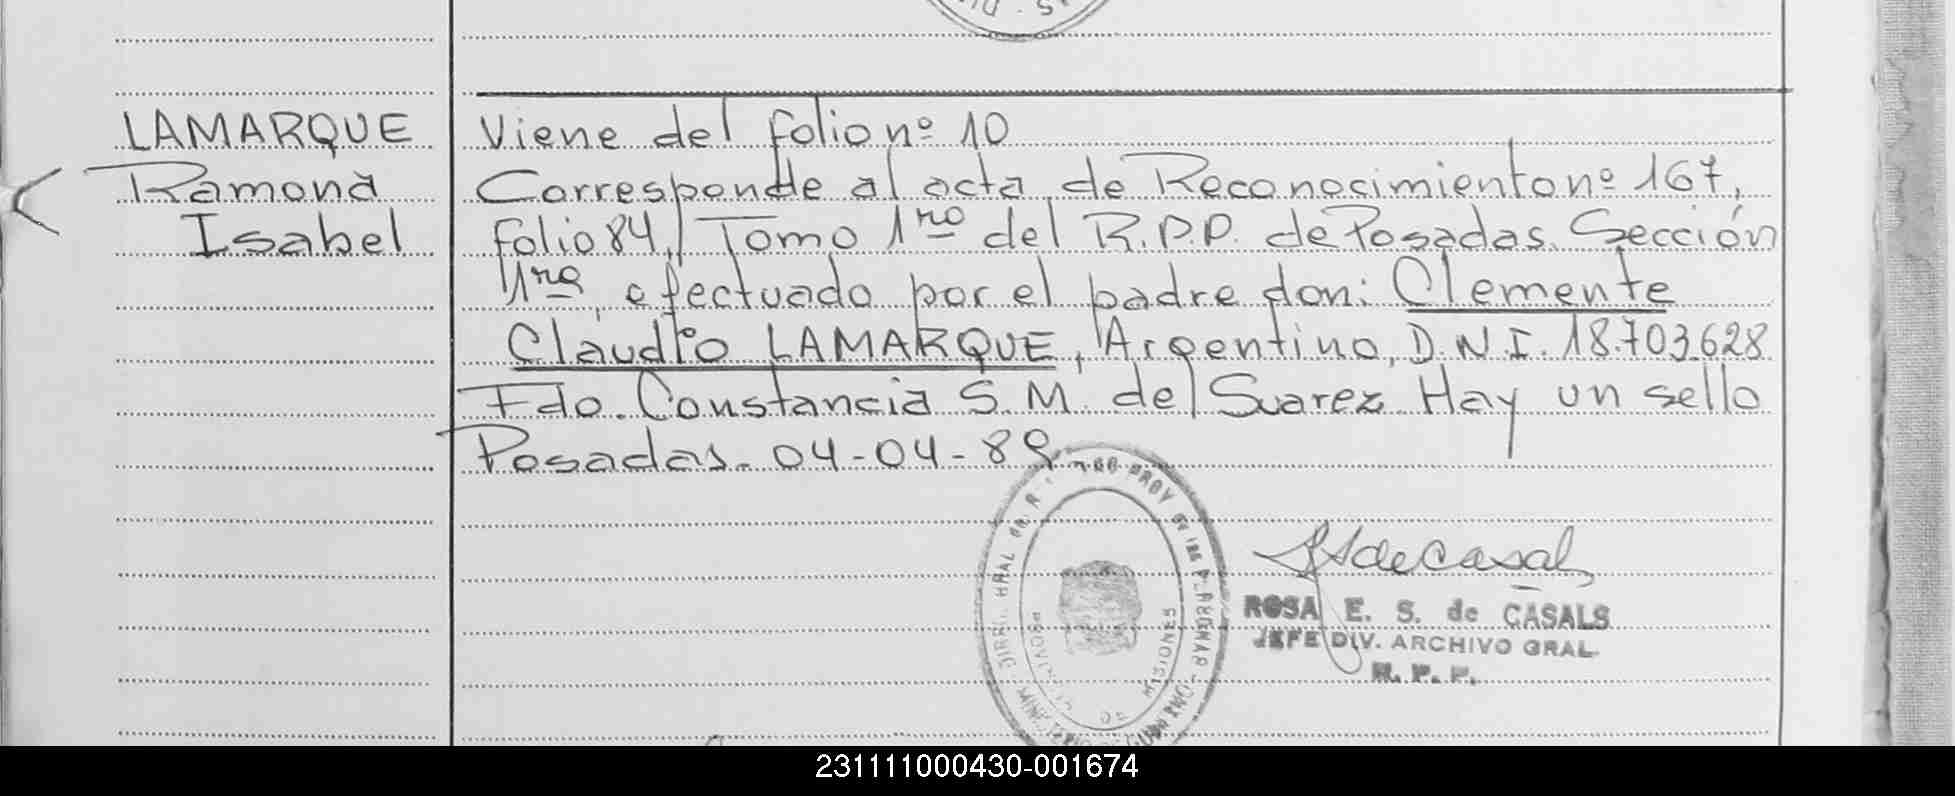 LAMARQUE
Ramona
Isabel
Viene del folio nº 10
Corresponde al acta de Reconocimiento nº 167,
folio 84, Tomo 1ro del R.P.P. de Posadas. Sección
1ra, efectuado por el padre don: Clemente
Claudio LAMARQUE, Argentino, D.N.I. 18.703.628
Fdo. Constancia S. M. de Suarez Hay un sello
Posadas. 04-04-89
ROSA E. S. de CASALS
JEFE DIV. ARCHIVO GRAL.
R. P. P.
PROV. de las PERSONAS
MISIONES
DE
231111000430-001674